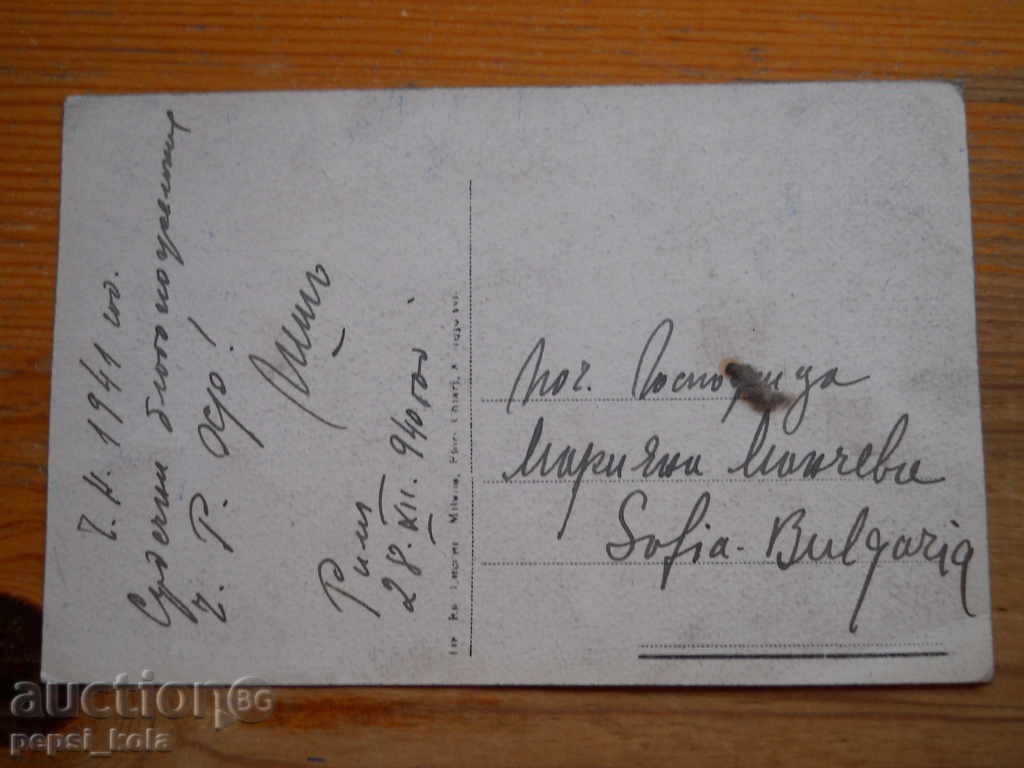 Ч. Н. 1941 год.
Сърдечни благопожелания
Ч. Р. !
Рим
28. XII. 940 год.
Поч. Госпожица
Марияна Манчева
Sofia - Bulgaria
auctionBG
pepsi_kola